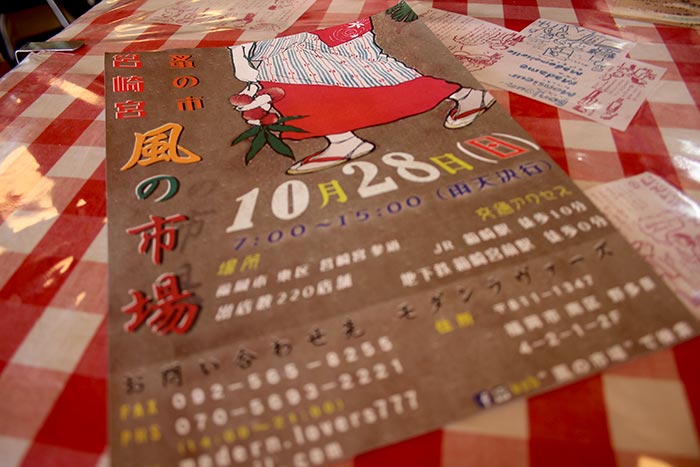 筥崎宮
蚤の市
風の市場
10月28日(日)
7:00〜15:00（雨天決行）
場所
福岡市 東区 筥崎宮 参道
出店数220店舗
交通アクセス
JR 箱崎駅 徒歩10分
地下鉄 箱崎宮前駅 徒歩0分
お問い合わせ先 モダンラヴァーズ
FAX 092-565-8255
PHS 070-5693-2221
(14:00〜21:00)
modern.lovers777
住所
〒811-1347
福岡市 南区 野多目
4-2-1-2F
"風の市場" で検索